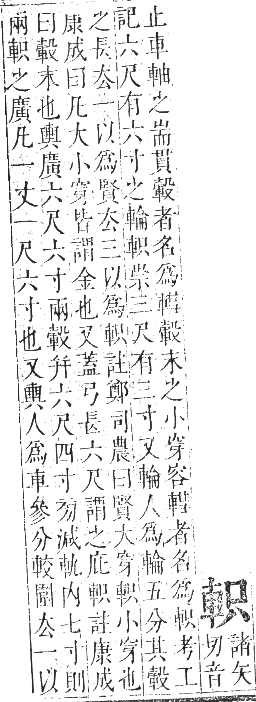 軹
諸矢
切音
止車軸之耑貫轂者名爲轊轂末之小穿容轊者名爲軹考工
記六尺有六寸之輪軹崇三尺有三寸又輪人爲輪五分其轂
之長厺一以爲賢厺三以爲軹註鄭司農曰賢大穿軹小穿也
康成曰凡大小穿皆謂金也又蓋弓長六尺謂之庇軹註康成
曰轂末也輿廣六尺六寸兩轂幷六尺四寸旁減軌內七寸則
兩軹之廣凡一丈一尺六寸也又輿人爲車參分較圍厺一以